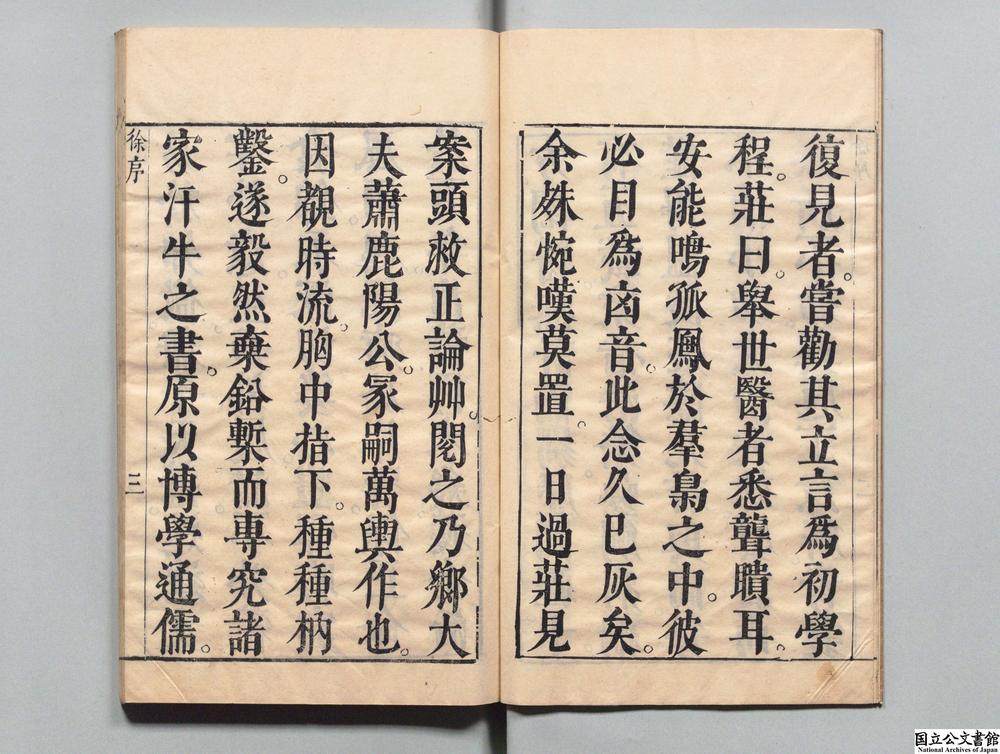 復見者。嘗勸其立言爲初學
程。莊曰。舉世醫者悉聾聵耳
安能鳴孤鳳於羣梟之中。彼
必目爲凶音。此念久已灰矣。
余姝惋嘆莫置。一日過莊見
案頭救正論艸。閱之乃鄉大
夫蕭鹿陽公。冢嗣萬輿作也。
因覩時流。胸中指下。種種枘
鑿。遂毅然棄鉛槧而專究諸
家汗牛之書。原以博學通儒。
徐序
三
国立公文書館
National Archives of Japan